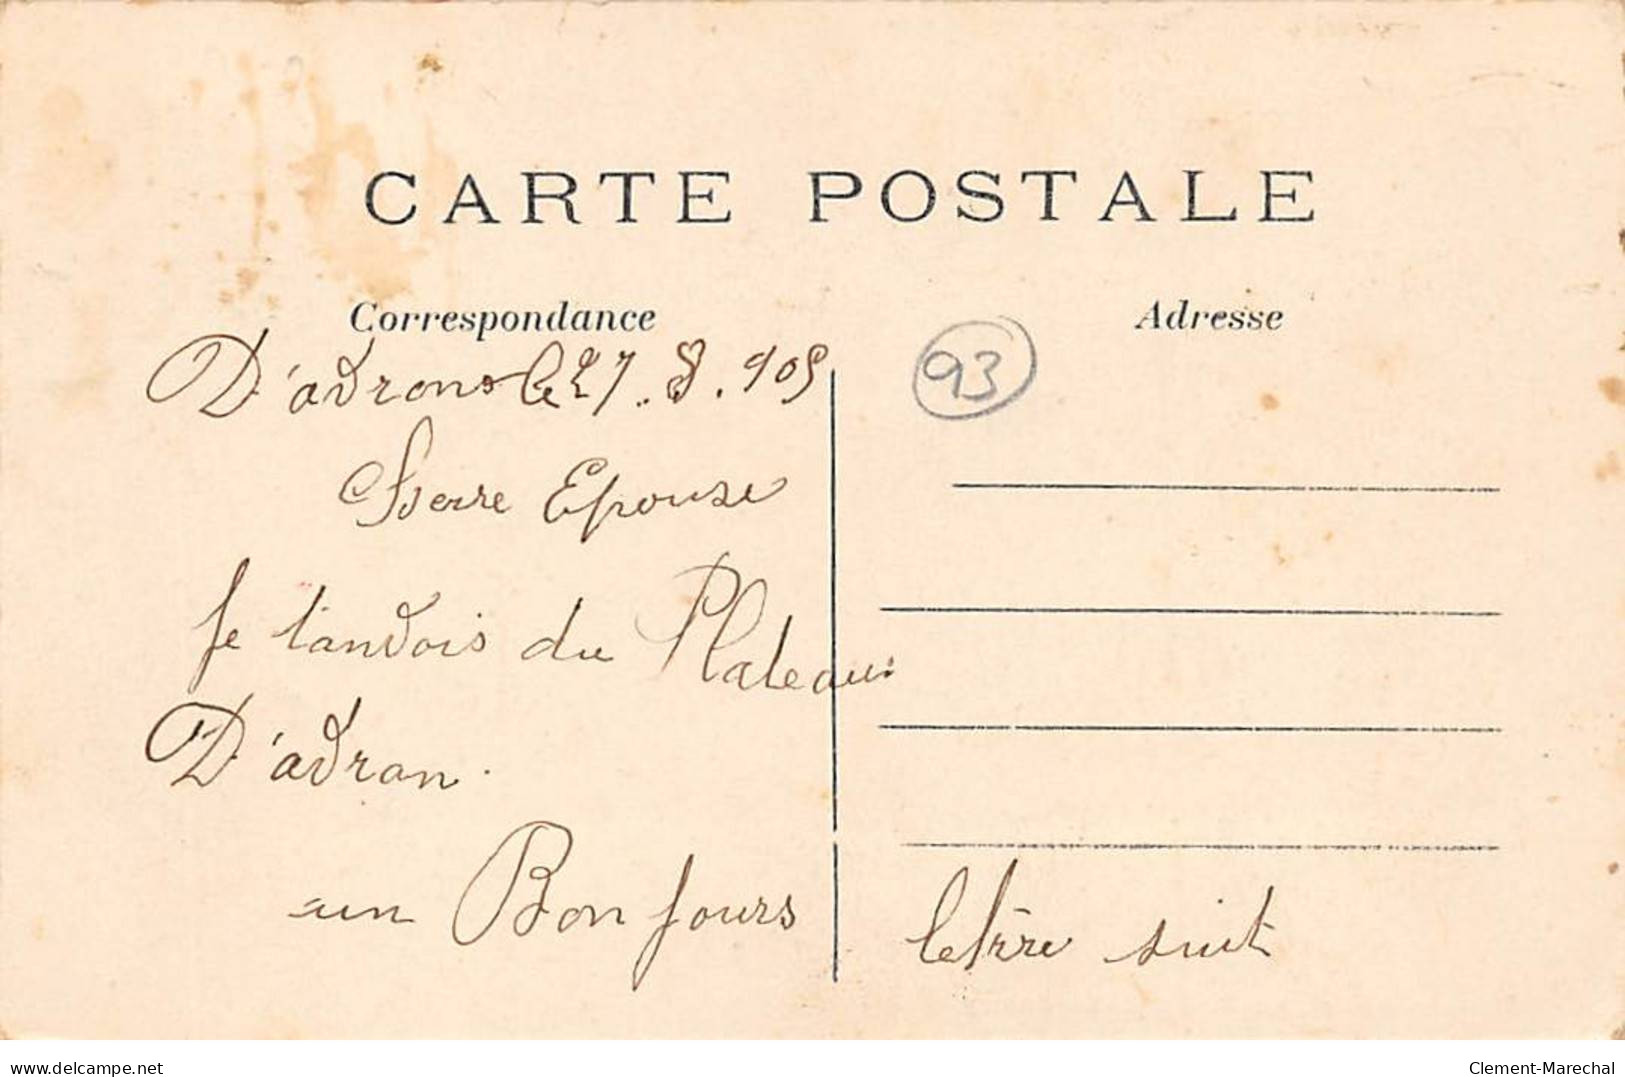 CARTE POSTALE
Correspondance
Adresse
D'adrons le 27. 8. 905
93
Epouse
Je t'andois du Plateau
D'adran.
un Bon jours
letrre suit
delcampe.net
Clement-Marechal